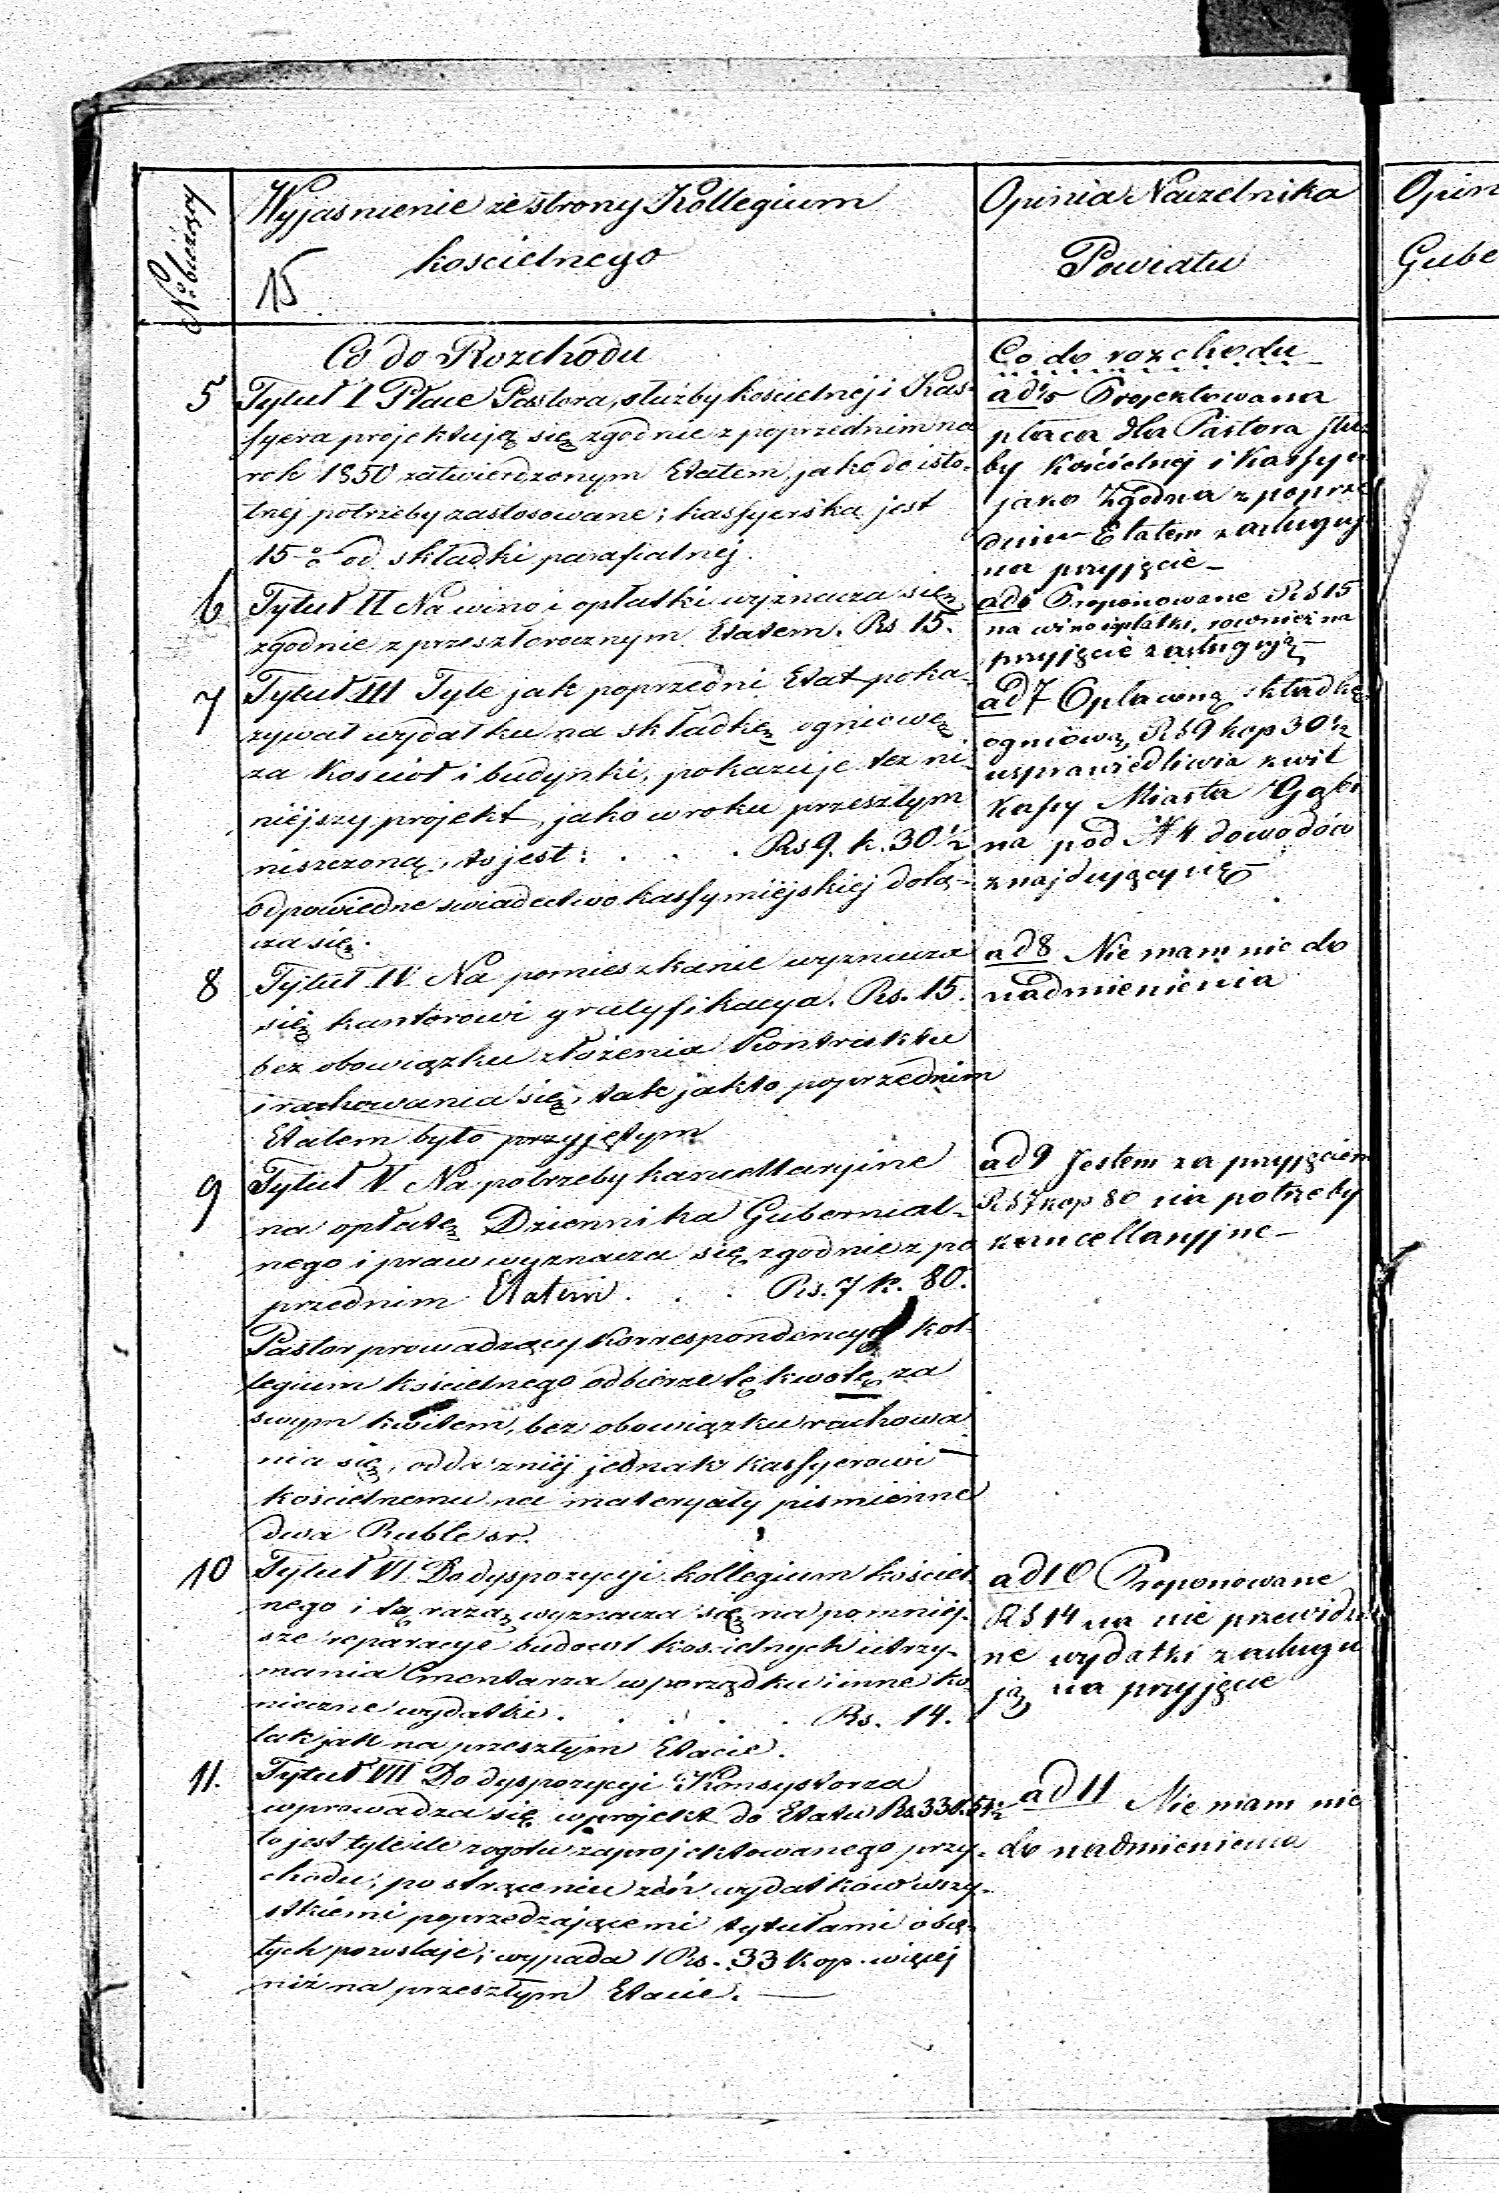 No. bieżący
Wyjasnienie ze strony Kollegium
kościelnego
15
Opinia Naczelnika
Powiatu
Opin
Gube
Co do Rozchodu
5 Tytuł I Płace Pastora, służby kościelnej i Kas-
syera projektują się zgodnie z poprzednim na
rok 1850 zatwierdzonym Etatem, jako do isto-
tnej potrzeby zastosowane; kassyerska jest
15 % od składki parafialnej.
6 Tytuł II Na wino i opłatki wyznacza się
zgodnie z przeszłorocznym Etatem. Rs 15.
7 Tytuł III Tyle jak poprzedni Etat poka-
zywał wydatku na składkę ogniową
za Kościoł i budynki, pokazuje też ni-
niejszy projekt, jako w roku przeszłym
niszczoną, to jest: . . . Rs 9. k. 30 1/2
odpowiedne swiadectwo kassy miejskiej dołą-
cza się.
8 Tytuł IV. Na pomieszkanie wyznacza
się kantorowi gratyfikacya. Rs. 15.
bez obowiązku złożenia Kontraktu
i rachowania się, tak jak to poprzednim
Etatem było przyjętym
9 Tytuł V. Na potrzeby kancellaryine
na opłatę Dziennika Gubernial-
nego i praw wyznacza się zgodnie z po
przednim Etatem . . . Rs. 7 k. 80.
Pastor prowadzący Korrespondencyą kol-
legium kościelnego odbierze tę kwotę za
swym kwitem, bez obowiązku rachowa
nia się, odda zniej jednak kassyerowi
kościelnemu na materyały piśmienne
dwa Ruble sr.
10 Tytuł VI. Do dyspozycyi kollegium kościel-
nego i tą razą wyznacza się na pomniej-
sze reparacye budowl kościelnych utrzy-
mania Cmentarza w porządku i inne ko
nieczne wydatki . . . . . Rs. 14.
tak jak na przeszłym Etacie.
11. Tytuł VII Do dyspozycyi Konsystorza
wprowadza się w projekt do Etatu Rs. 330. 54 1/2
to jest tyle ile z ogołu zaprojektowanego przy-
chodu, po strąceniu zeń wydatkow wszy-
stkiemi poprzedzającemi tytułami obję-
tych pozostaje; wypada 1 Rs. 33 kop. więcej
niż na przeszłym Etacie.
Co do rozchodu
ad 5 Projektowana
płaca dla Pastora słuz
by kościelnej i Kassyer
jako zgodna z poprze
dnim Etatem zasługuj
na przyjęcie
ad 6 Proponowane RS 15
na wino i opłatki, rownież na
przyjęcie zasługują
ad 7 Opłaconą składkę
ogniową RS 9 kop 30 1/2
usprawiedliwia kwit
Kassy Miasta Gąbi
na pod N 4 dowodów
znajdujący się
ad 8 Nie mam nic do
nadmienienia
ad 9 Jestem za przyjęciem
RS 7 kop 80 na potrzeby
kancellaryjne
ad 10 Proponowane
RS 14 na nie przewidzia
ne wydatki zasługu
ją na przyjęcie
ad 11 Nie mam nic
do nadmienienia